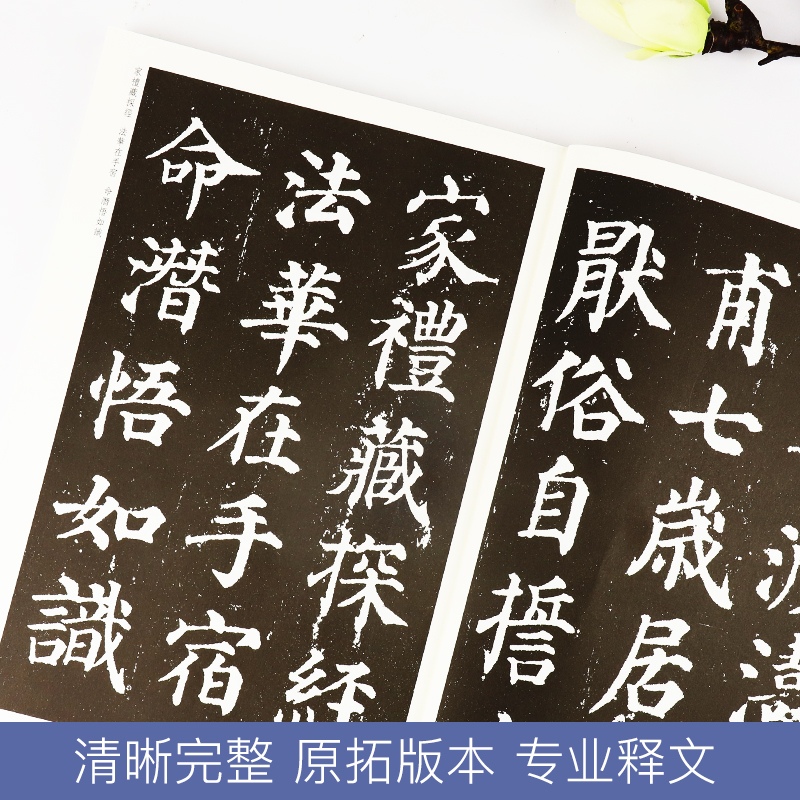 甫七歲居
厭俗自誓
家禮藏探經
法華在手宿
命潛悟如識
家禮藏探經 法華在手宿 命潛悟如識
清晰完整 原拓版本 专业释文